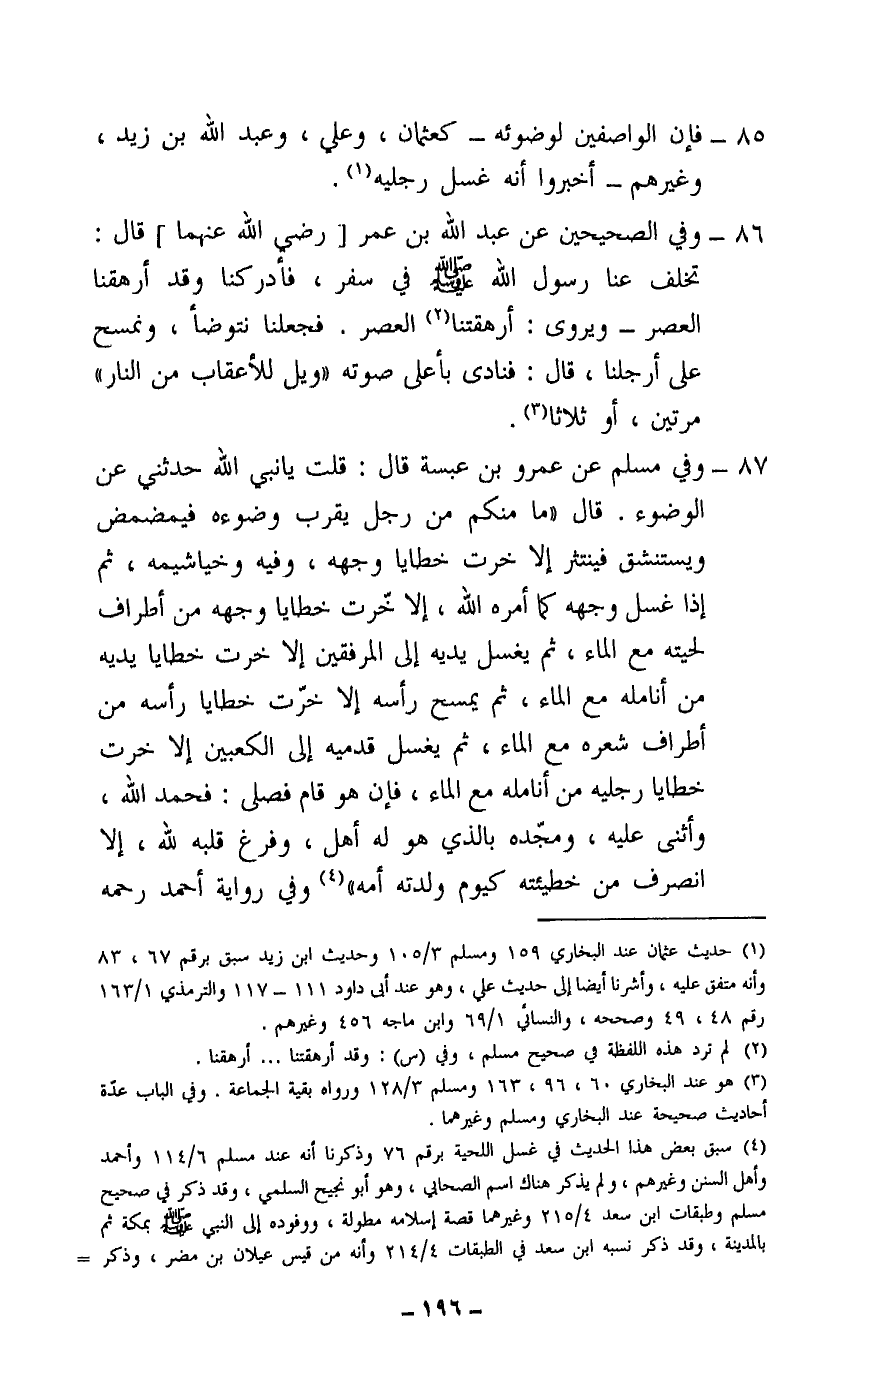 ٨٥ ــ فإن الواصفين لوضوئه ــ كعثمان ، وعلي ، وعبد الله بن زيد ،
وغيرهم ــ أخبروا أنه غسل رجليه(١) .
٨٦ ــ وفي الصحيحين عن عبد الله بن عمر [ رضي الله عنهما ] قال :
تخلف عنا رسول الله ﷺ في سفر ، فأدركنا وقد أرهقنا
العصر ــ ويروى : أرهقتنا(٢) العصر . فجعلنا نتوضأ ، ونمسح
على أرجلنا ، قال : فنادى بأعلى صوته «ويل للأعقاب من النار»
مرتين ، أو ثلاثا(٣) .
٨٧ ــ وفي مسلم عن عمرو بن عبسة قال : قلت يانبي الله حدثني عن
الوضوء . قال «ما منكم من رجل يقرب وضوءه فيمضمض
ويستنشق فينتثر إلا خرت خطايا وجهه ، وفيه وخياشيمه ، ثم
إذا غسل وجهه كما أمره الله ، إلا خّرت خطايا وجهه من أطراف
لحيته مع الماء ، ثم يغسل يديه إلى المرفقين إلا خرت خطايا يديه
من أنامله مع الماء ، ثم يمسح رأسه إلا خرّت خطايا رأسه من
أطراف شعره مع الماء ، ثم يغسل قدميه إلى الكعبين إلا خرت
خطايا رجليه من أنامله مع الماء ، فإن هو قام فصلى : فحمد الله ،
وأثنى عليه ، ومجّده بالذي هو له أهل ، وفرغ قلبه لله ، إلا
انصرف من خطيئته كيوم ولدته أمه»(٤) وفي رواية أحمد رحمه
(١) حديث عثمان عند البخاري ١٥٩ ومسلم ١٠٥/٣ وحديث ابن زيد سبق برقم ٦٧ ، ٨٣
وأنه متفق عليه ، وأشرنا أيضا إلى حديث علي ، وهو عند أبى داود ١١١ ــ ١١٧ والترمذي ١٦٣/١
رقم ٤٨ ، ٤٩ وصححه ، والنسائي ٦٩/١ وابن ماجه ٤٥٦ وغيرهم .
(٢) لم ترد هذه اللفظة في صحيح مسلم ، وفي (س) : وقد أرهقتنا ... أرهقنا .
(٣) هو عند البخاري ٦٠ ، ٩٦ ، ١٦٣ ومسلم ١٢٨/٣ ورواه بقية الجماعة . وفي الباب عدّة
أحاديث صحيحة عند البخاري ومسلم وغيرهما .
(٤) سبق بعض هذا الحديث في غسل اللحية برقم ٧٦ وذكرنا أنه عند مسلم ١١٤/٦ وأحمد
وأهل السنن وغيرهم ، ولم يذكر هناك اسم الصحابي ، وهو أبو نجيح السلمي ، وقد ذكر في صحيح
مسلم وطبقات ابن سعد ٢١٥/٤ وغيرهما قصة إسلامه مطولة ، ووفوده إلى النبي ﷺ بمكة ثم
بالمدينة ، وقد ذكر نسبه ابن سعد في الطبقات ٢١٤/٤ وأنه من قيس عيلان بن مضر ، وذكر =
ــ ١٩٦ ــ